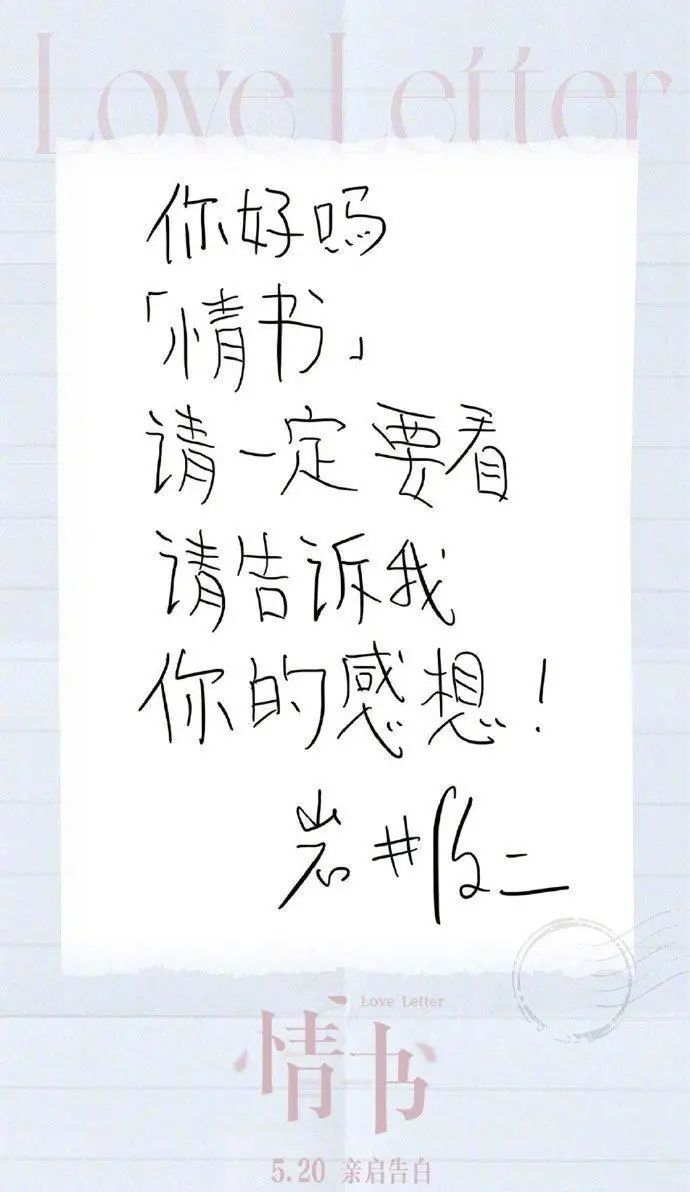 Love Letter
你好吗
「情书」
请一定要看
请告诉我
你的感想！
岩井俊二
Love Letter
情书
5.20 亲启告白